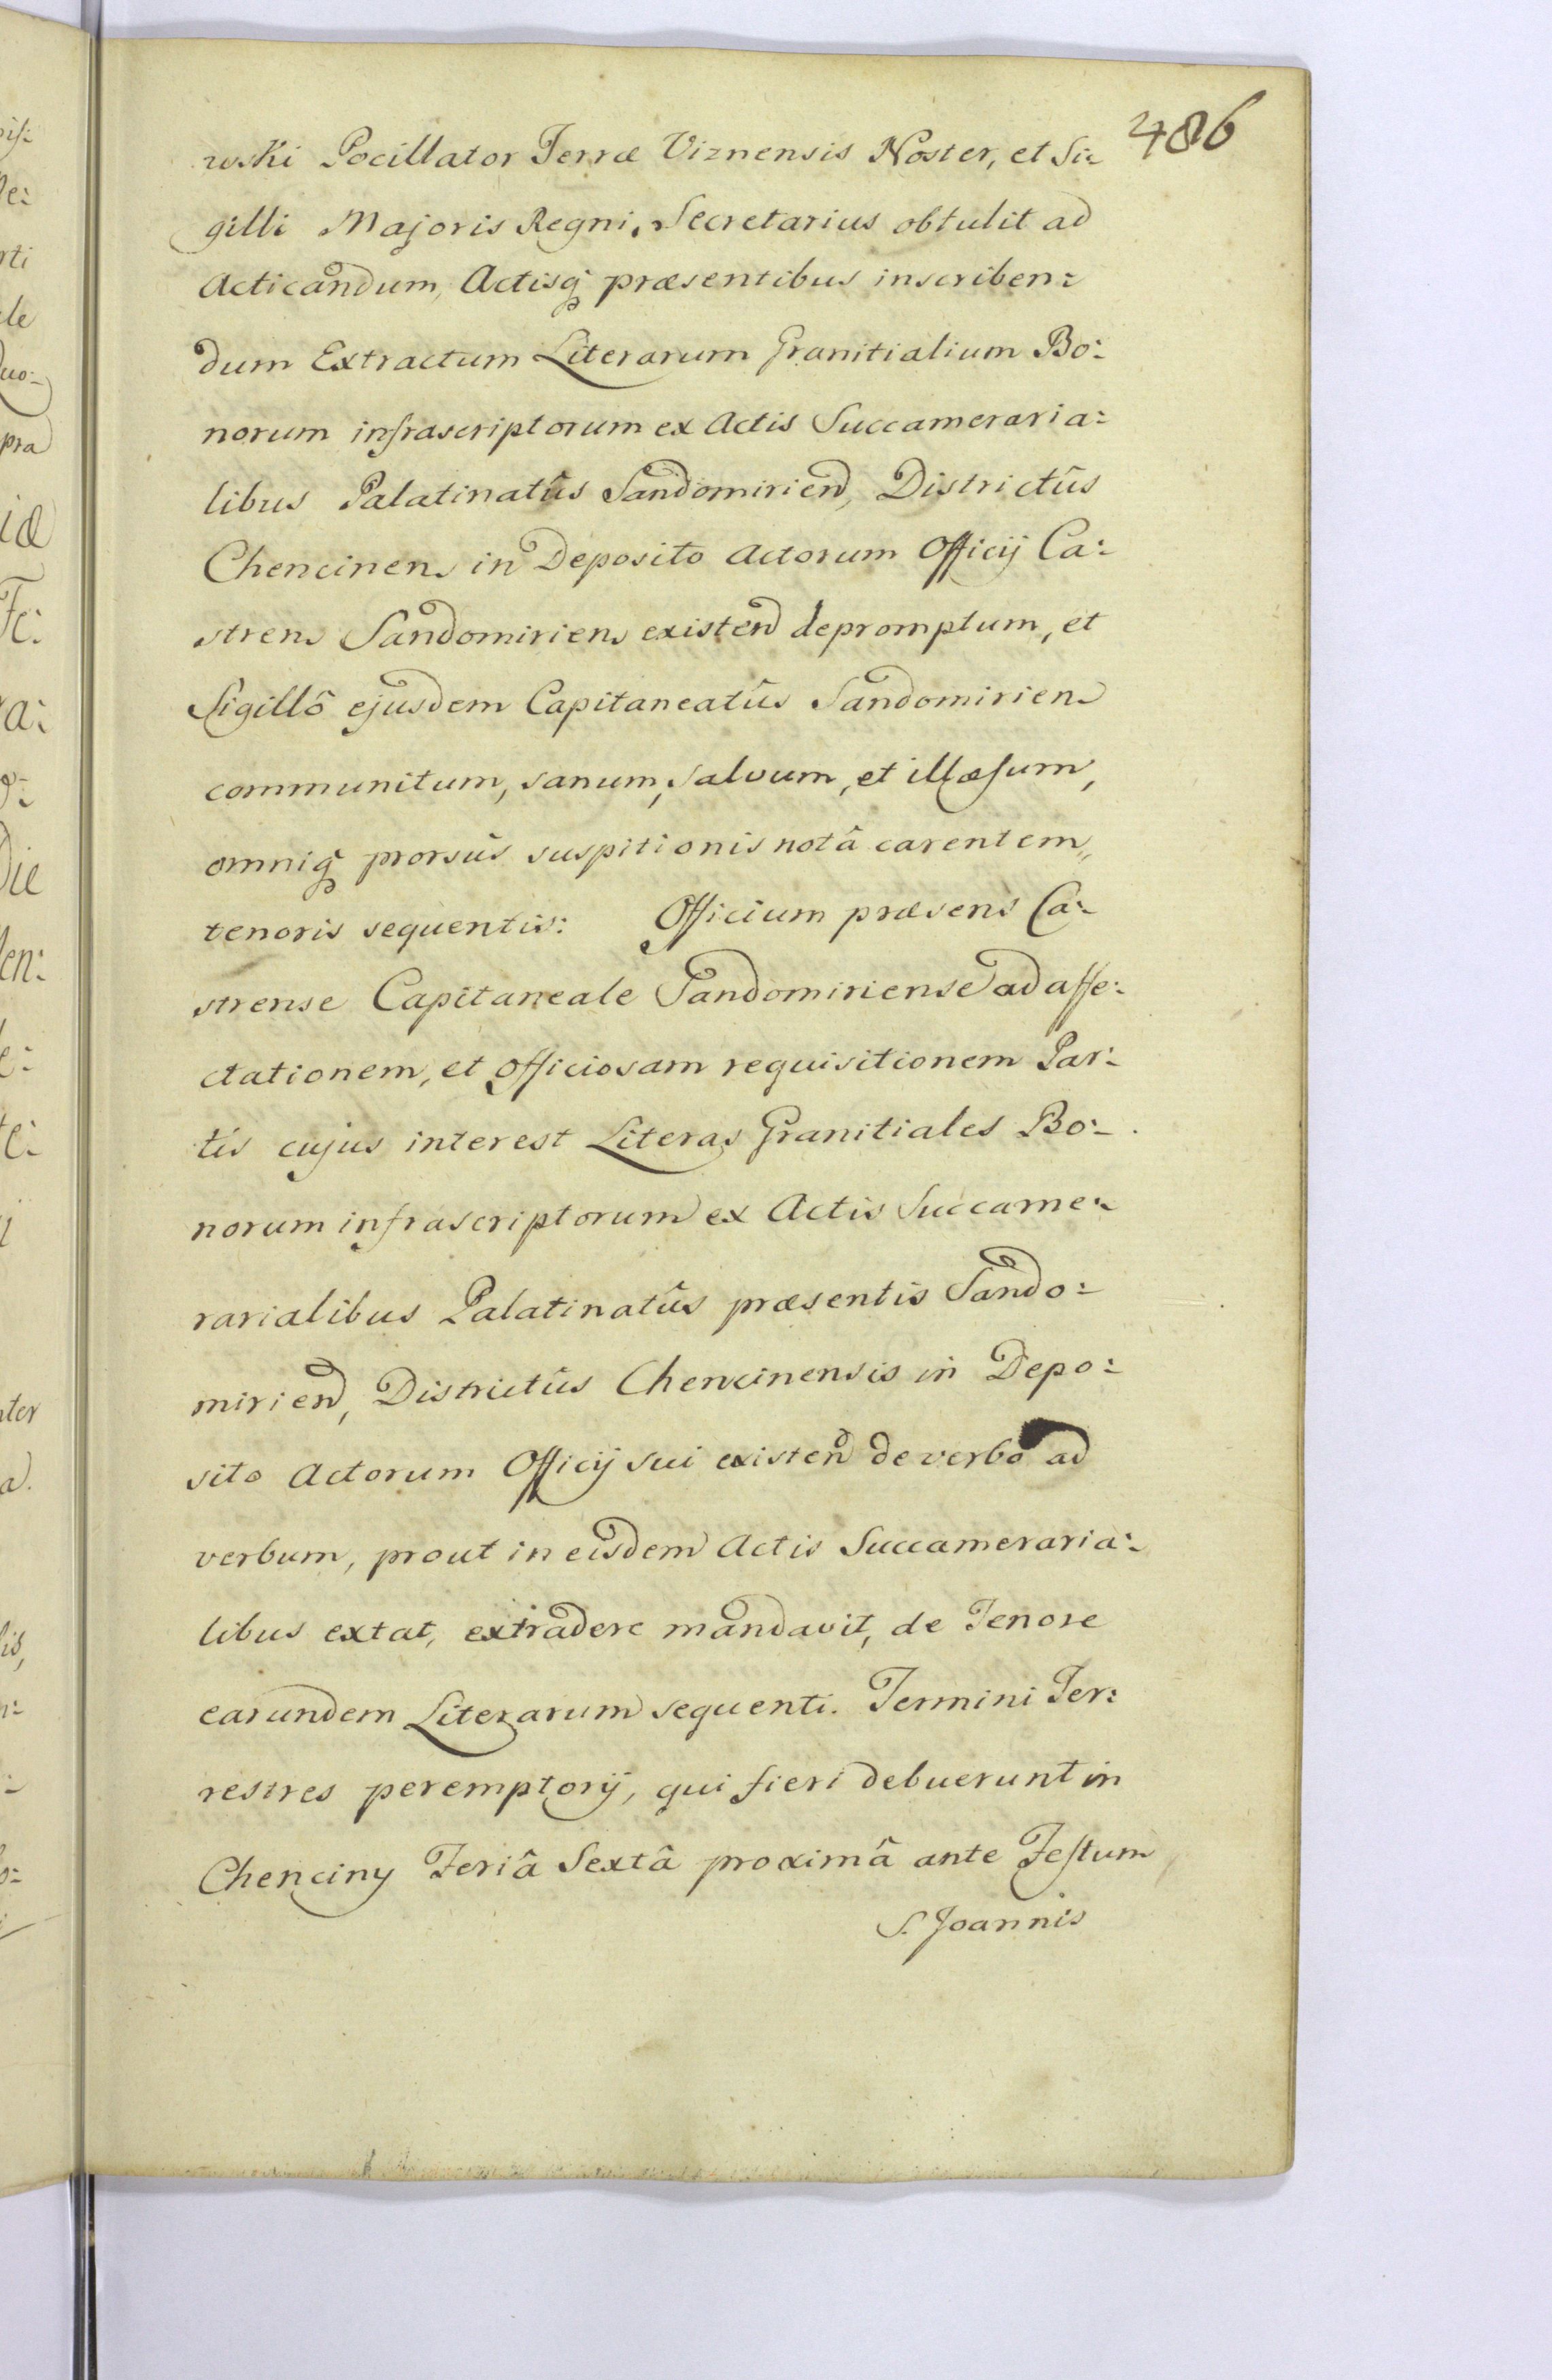 486
wski Pocillator Terræ Viznensis Noster, et Si:
gilli Majoris Regni, Secretarius obtulit ad
Acticandum, Actisq̃ præsentibus inscriben:
dum Extractum Literarum Granitialium Bo:
norum infrascriptorum ex Actis Succameraria:
libus Palatinatûs Sandomirien, Districtûs
Chencinen, in Deposito Actorum Officij Ca:
stren, Sandomirien, existen depromptum, et
Sigillô ejusdem Capitaneatûs Sandomirien
communitum, sanum, salvum, et illæsum,
omniq̃ prorsûs suspitionis notâ carentem,
tenoris sequentis: Officium præsens Ca:
strense Capitaneale Sandomiriense ad affe:
ctationem, et officiosam requisitionem Par:
tis cujus interest Literas Granitiales Bo:
norum infrascriptorum ex Actis Succame:
rarialibus Palatinatûs præsentis Sando:
mirien, Districtûs Chencinensis in Depo:
sito Actorum Officij sui existen de verbo ad
verbum, prout in eisdem Actis Succameraria:
libus extat, extradere mandavit, de Tenore
earundem Literarum sequenti. Termini Ter:
restres peremptorij, qui fieri debuerunt in
Chenciny Feriâ Sextâ proximâ ante Festum
S. Joannis